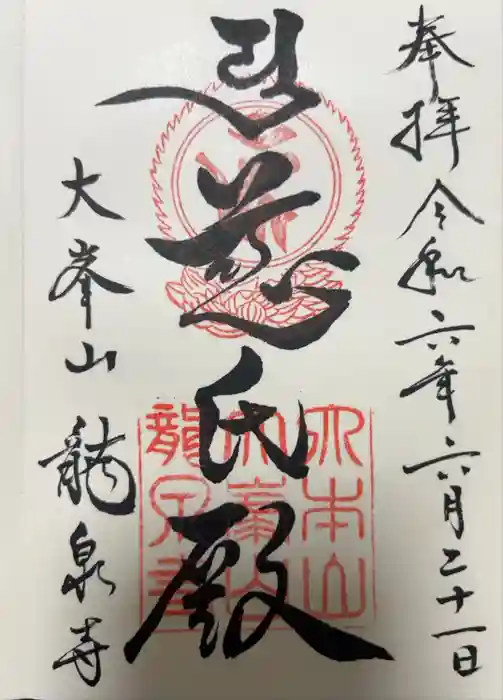 奉拝 令和六年六月二十一日
慈氏殿
大峯山 龍泉寺
大本山
大峯山
龍泉寺